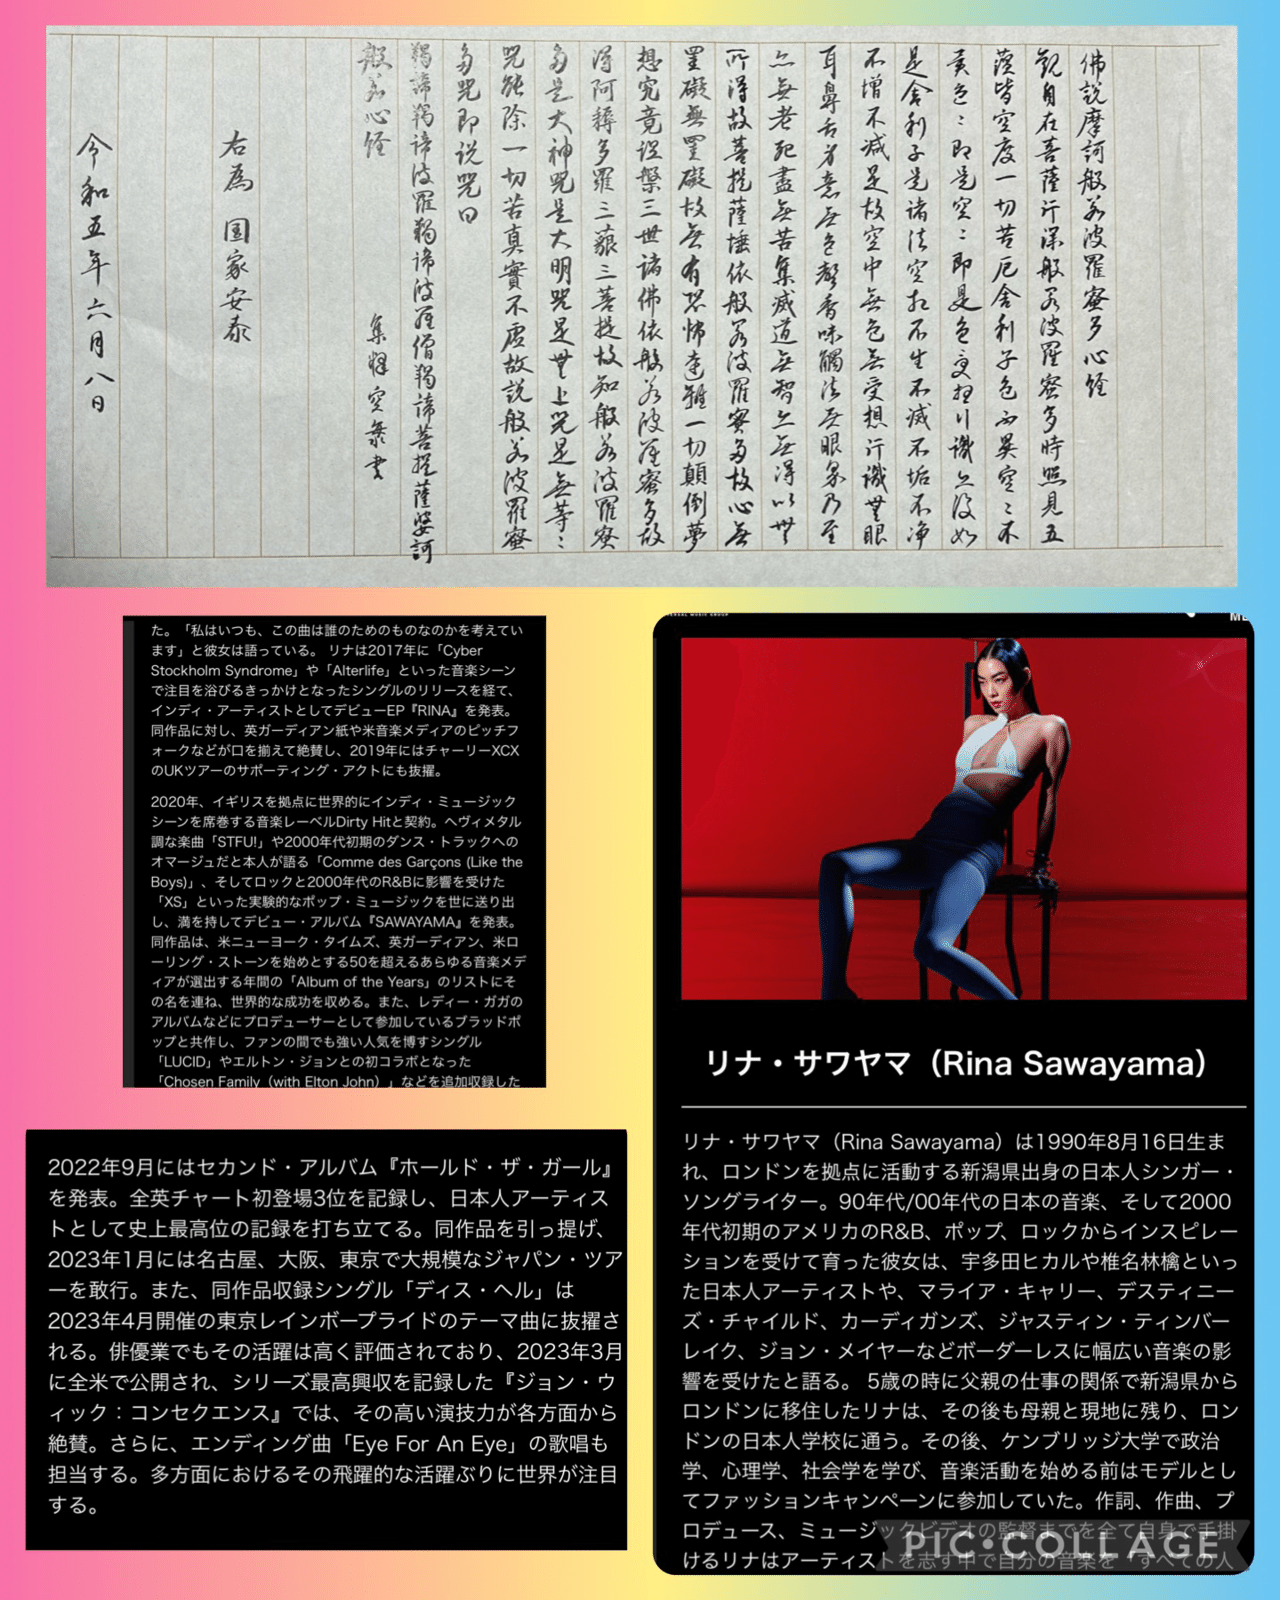 佛説摩訶般若波羅蜜多心経
観自在菩薩行深般若波羅蜜多時照見五
蘊皆空度一切苦厄舎利子色不異空々不
異色々即是空々即是色受想行識亦復如
是舎利子是諸法空相不生不滅不垢不浄
不増不減是故空中無色無受想行識無眼
耳鼻舌身意無色聲香味觸法無眼界乃至
亦無老死盡無苦集滅道無智亦無得以無
所得故菩提薩埵依般若波羅蜜多故心無
罣礙無罣礙故無有恐怖遠離一切顛倒夢
想究竟涅槃三世諸佛依般若波羅蜜多故
得阿耨多羅三藐三菩提故知般若波羅蜜
多是大神咒是大明咒是無上咒是無等々
咒能除一切苦真實不虚故説般若波羅蜜
多咒即説咒曰
羯諦羯諦波羅羯諦波羅僧羯諦菩提薩婆訶
般若心経
右為 国家安泰
令和五年六月八日
た。「私はいつも、この曲は誰のためのものなのかを考えてい
ます」と彼女は語っている。 リナは2017年に「Cyber
Stockholm Syndrome」や「Alterlife」といった音楽シーン
で注目を浴びるきっかけとなったシングルのリリースを経て、
インディ・アーティストとしてデビューEP『RINA』を発表。
同作品に対し、英ガーディアン紙や米音楽メディアのピッチフ
ォークなどが口を揃えて絶賛し、2019年にはチャーリーXCX
のUKツアーのサポーティング・アクトにも抜擢。
2020年、イギリスを拠点に世界的にインディ・ミュージック
シーンを席巻する音楽レーベルDirty Hitと契約。ヘヴィメタル
調な楽曲「STFU!」や2000年代初期のダンス・トラックへの
オマージュだと本人が語る「Comme des Garçons (Like the
Boys)」、そしてロックと2000年代のR&Bに影響を受けた
「XS」といった実験的なポップ・ミュージックを世に送り出
し、満を持してデビュー・アルバム『SAWAYAMA』を発表。
同作品は、米ニューヨーク・タイムズ、英ガーディアン、米ロ
ーリング・ストーンを始めとする50を超えるあらゆる音楽メデ
ィアが選出する年間の「Album of the Years」のリストにそ
の名を連ね、世界的な成功を収める。また、レディー・ガガの
アルバムなどにプロデューサーとして参加しているブラッドポ
ップと共作し、ファンの間でも強い人気を博すシングル
「LUCID」やエルトン・ジョンとの初コラボとなった
「Chosen Family（with Elton John）」などを追加収録した
2022年9月にはセカンド・アルバム『ホールド・ザ・ガール』
を発表。全英チャート初登場3位を記録し、日本人アーティス
トとして史上最高位の記録を打ち立てる。同作品を引っ提げ、
2023年1月には名古屋、大阪、東京で大規模なジャパン・ツア
ーを敢行。また、同作品収録シングル「ディス・ヘル」は
2023年4月開催の東京レインボープライドのテーマ曲に抜擢さ
れる。俳優業でもその活躍は高く評価されており、2023年3月
に全米で公開され、シリーズ最高興収を記録した『ジョン・ウ
ィック：コンセクエンス』では、その高い演技力が各方面から
絶賛。さらに、エンディング曲「Eye For An Eye」の歌唱も
担当する。多方面におけるその飛躍的な活躍ぶりに世界が注目
する。
リナ・サワヤマ（Rina Sawayama）
リナ・サワヤマ（Rina Sawayama）は1990年8月16日生ま
れ、ロンドンを拠点に活動する新潟県出身の日本人シンガー・
ソングライター。90年代/00年代の日本の音楽、そして2000
年代初期のアメリカのR&B、ポップ、ロックからインスピレー
ションを受けて育った彼女は、宇多田ヒカルや椎名林檎といっ
た日本人アーティストや、マライア・キャリー、デスティニー
ズ・チャイルド、カーディガンズ、ジャスティン・ティンバー
レイク、ジョン・メイヤーなどボーダーレスに幅広い音楽の影
響を受けたと語る。 5歳の時に父親の仕事の関係で新潟県から
ロンドンに移住したリナは、その後も母親と現地に残り、ロン
ドンの日本人学校に通う。その後、ケンブリッジ大学で政治
学、心理学、社会学を学び、音楽活動を始める前はモデルとし
てファッションキャンペーンに参加していた。作詞、作曲、プ
ロデュース、ミュージックビデオの監督までを全て自身で手掛
けるリナはアーティストを志す中で自分の音楽を「すべての人
PIC•COLLAGE